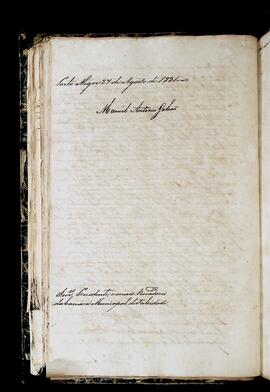 Porto Alegre 27 de Agosto de 1831
Manoel Antonio Galvão
Snr.s Presidente, e mais Vereadores
da Camara Municipal desta Cidade